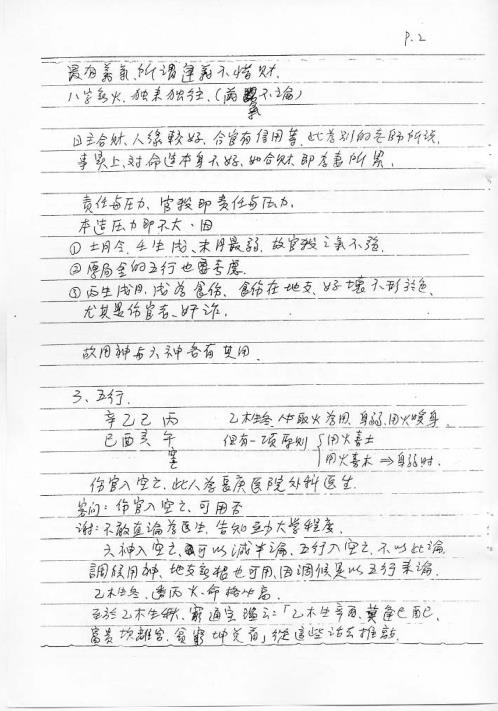 P.2
最有義氣,所謂達義不惜財.
八字無火,独来独往,(兩氣不論)
日主合財,人緣較好,合官有信用等,此為别的老師所說,
事實上,对命造本身不好,如合財即李喜所累,
責任与压力,官殺即責任与压力.
本造压力即不大.因
①土月令,壬生戌、未月最弱,故官殺之氣不強.
②原局全的五行也要考慮.
③丙生戌月,戌為食伤,食伤在地支,好壞不形於色.
尤其是伤官者,奸诈.
故用神与六神各有其用.
3、五行.
辛乙己丙 乙木生冬,中取火為用,身弱,用火暖身.
巳酉亥午 但有一項原則 用火喜土
空 用火喜木⇒身弱时.
伤官入空亡,此人為長庚医院外科医生.
客问:伤官入空亡,可用否
谢:不敢直論為医生,告知至力大學程度.
六神入空亡,可以減半論,五行入空亡,不以此論.
調候用神,地支無根也可用,因調候是以五行来論.
乙木生冬,透丙火,命格必高.
至於乙木生秋,窮通宝鑑云:「乙木生辛酉,莫逢巳酉丑,
富贵坎離宮,貧窮坤兌有」從這些话去推敲.